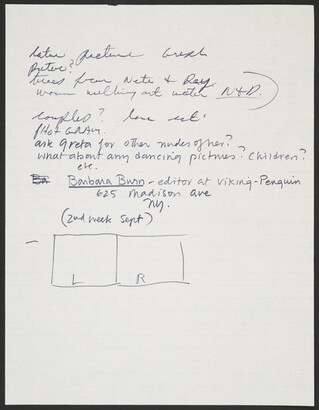 picture
trees from Nate & Ray
woman walking out water N&D.
couples? love
ask Greta for other nudes of her?
what about any dancing pictures? Children?
etc.
Barbara Burn - editor at Viking-Penguin
625 Madison Ave
NY.
(2nd week Sept)
L R